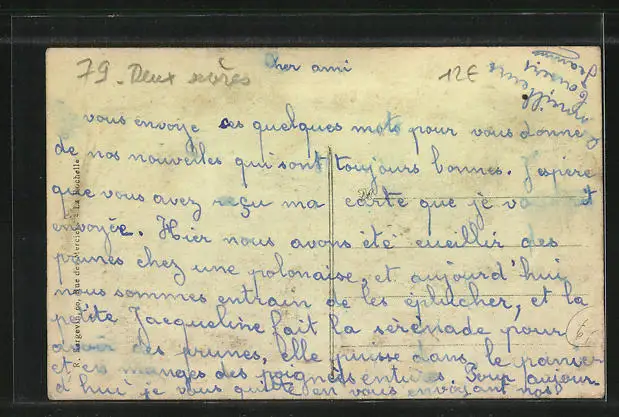 79 - Deux sèvres
12€
Cher ami
Je vous envoye ces quelques mots pour vous donnez
de nos nouvelles qui sont toujours bonnes. J'espère
que vous avez reçu ma carte que je vous et
envoyée. Hier nous avons été cueillir des
prunes chez une polonaise, et aujourd'hui
nous sommes entrain de les éplucher, et la
petite Jacqueline fait la sérénade pour
avoir des prunes, elle puise dans le panier
et en manges des poignées entières. Pour aujour
d'hui je vous quitte en vous envoyant nos
meilleurs
R. Bergevin, 60, Rue des Merciers, La Rochelle